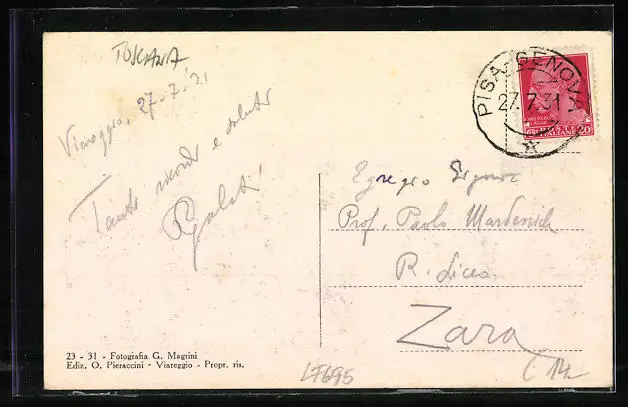 TOSCANA
Viareggio, 27-7-31
Tanti ricordi e saluti
PISA-GENOVA
27.7.31
POSTE ITALIANE
20
Egregio Signor
Prof. Paolo
R. Liceo
Zara
23 - 31 - Fotografia G. Magrini
Ediz. O. Pieraccini - Viareggio - Propr. ris.
L7695